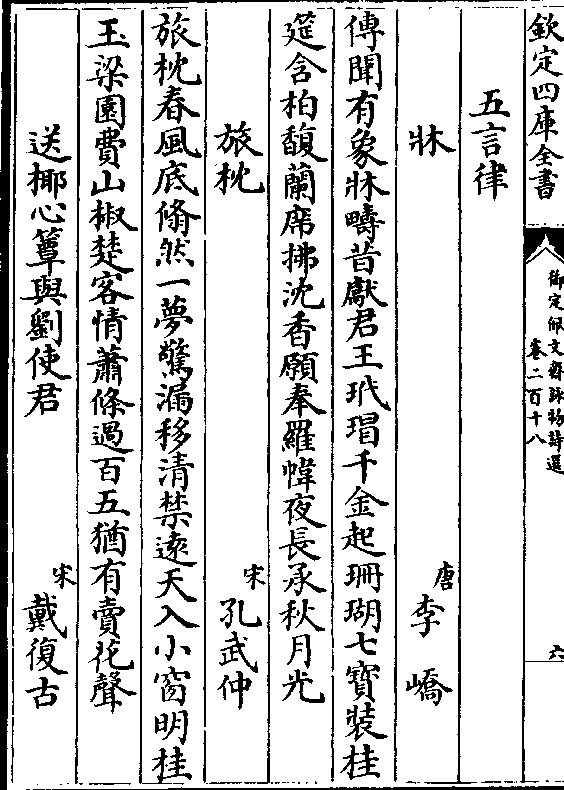 欽定四庫全書
御定佩文齋詠物詩選
卷二百十八
六
五言律
牀
唐
李嶠
傳聞有象牀疇昔獻君王玳瑁千金起珊瑚七寶裝桂
筵含柏馥蘭席拂沈香願奉羅幃夜長承秋月光
旅枕
宋
孔武仲
旅枕春風底翛然一夢驚漏移清禁遠天入小窗明桂
玉梁園費山椒楚客情蕭條過百五猶有賣花聲
送椰心簟與劉使君
宋
戴復古